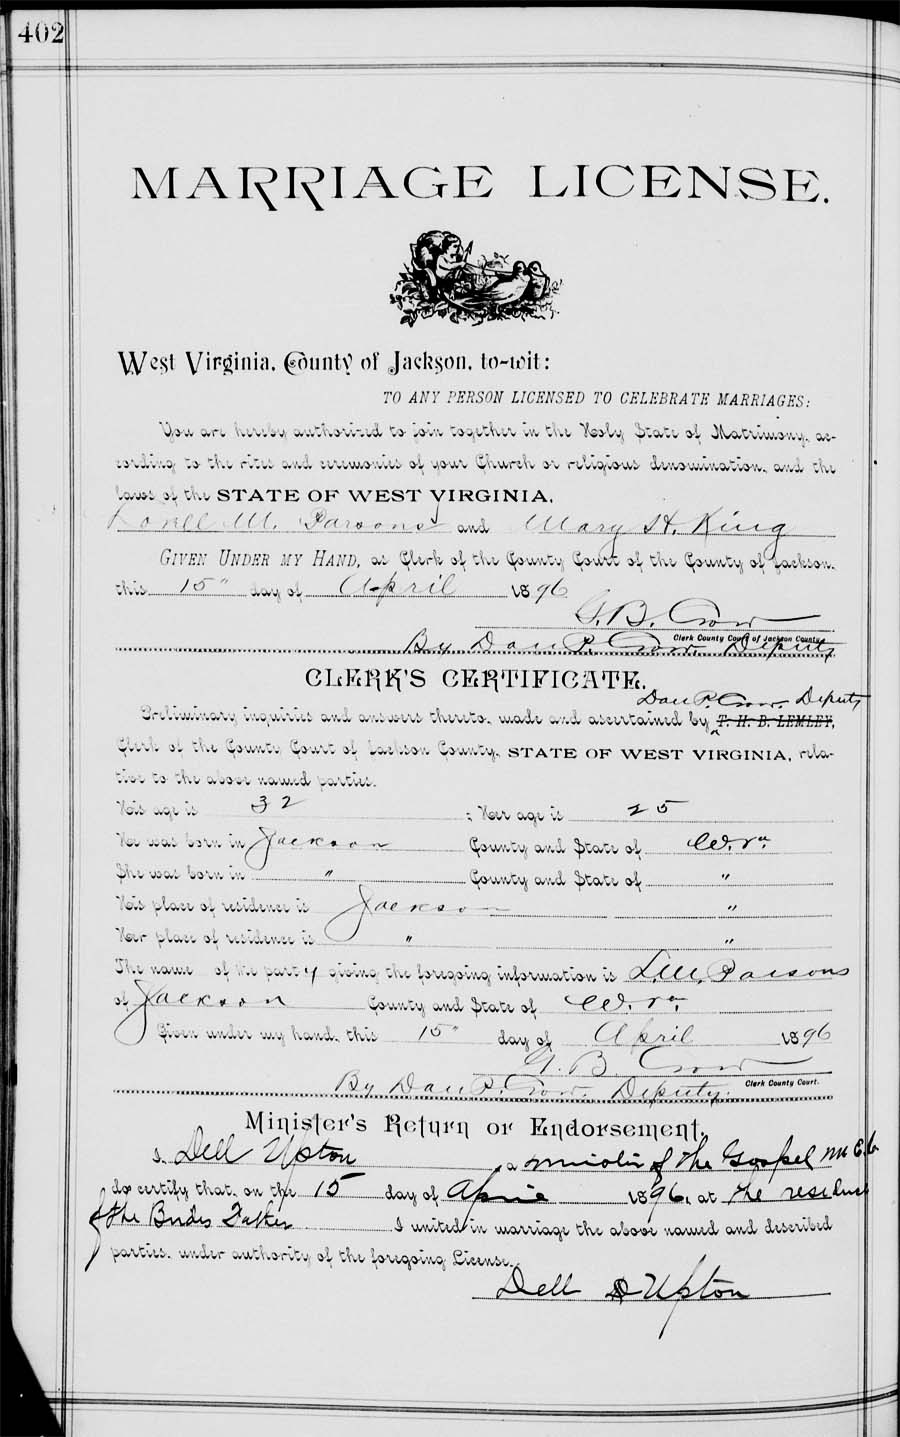 402
MARRIAGE LICENSE.
West Virginia, County of Jackson, to-wit:
TO ANY PERSON LICENSED TO CELEBRATE MARRIAGES:
You are hereby authorized to join together in the Holy State of Matrimony, ac-
cording to the rites and ceremonies of your Church or religious denomination, and the
laws of the STATE OF WEST VIRGINIA,
M. Parsons and Mary H. King
GIVEN UNDER MY HAND, as Clerk of the County Court of the County of Jackson,
this 15" day of April 1896
G. B. Crow
Clerk County Court of Jackson County.
By Dan P. Crow. Deputy
CLERK'S CERTIFICATE.
Dan P. Crow. Deputy
Preliminary inquiries and answers thereto, made and ascertained by T. H. B. LEMLEY,
Clerk of the County Court of Jackson County, STATE OF WEST VIRGINIA, rela-
tive to the above named parties.
His age is 32 ; Her age is 25
He was born in Jackson County and State of W. Va.
She was born in " County and State of "
His place of residence is Jackson "
Her place of residence is " "
The name of the party giving the foregoing information is L. M. Parsons
of Jackson County and State of W. Va.
Given under my hand, this 15" day of April 1896
G. B. Crow
Clerk County Court.
By Dan P. Crow. Deputy.
Minister's Return or Endorsement.
I, Dell Upton, a minister of the Gospel M E C
do certify that, on the 15 day of April 1896, at the residence
of the Brides Father I united in marriage the above named and described
parties, under authority of the foregoing License.
Dell Upton